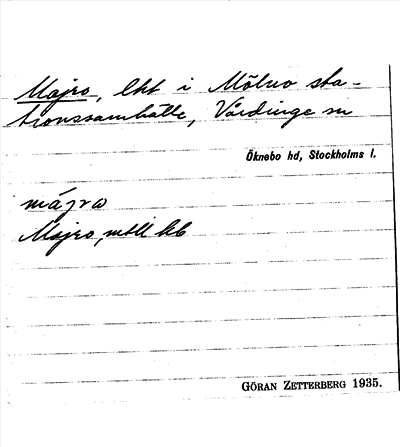 Majro, lht i Mölno sta-
tionssamhälle, Vårdinge sn
Öknebo hd, Stockholms l.
májro
Majro, mtll kb
GÖRAN ZETTERBERG 1935.